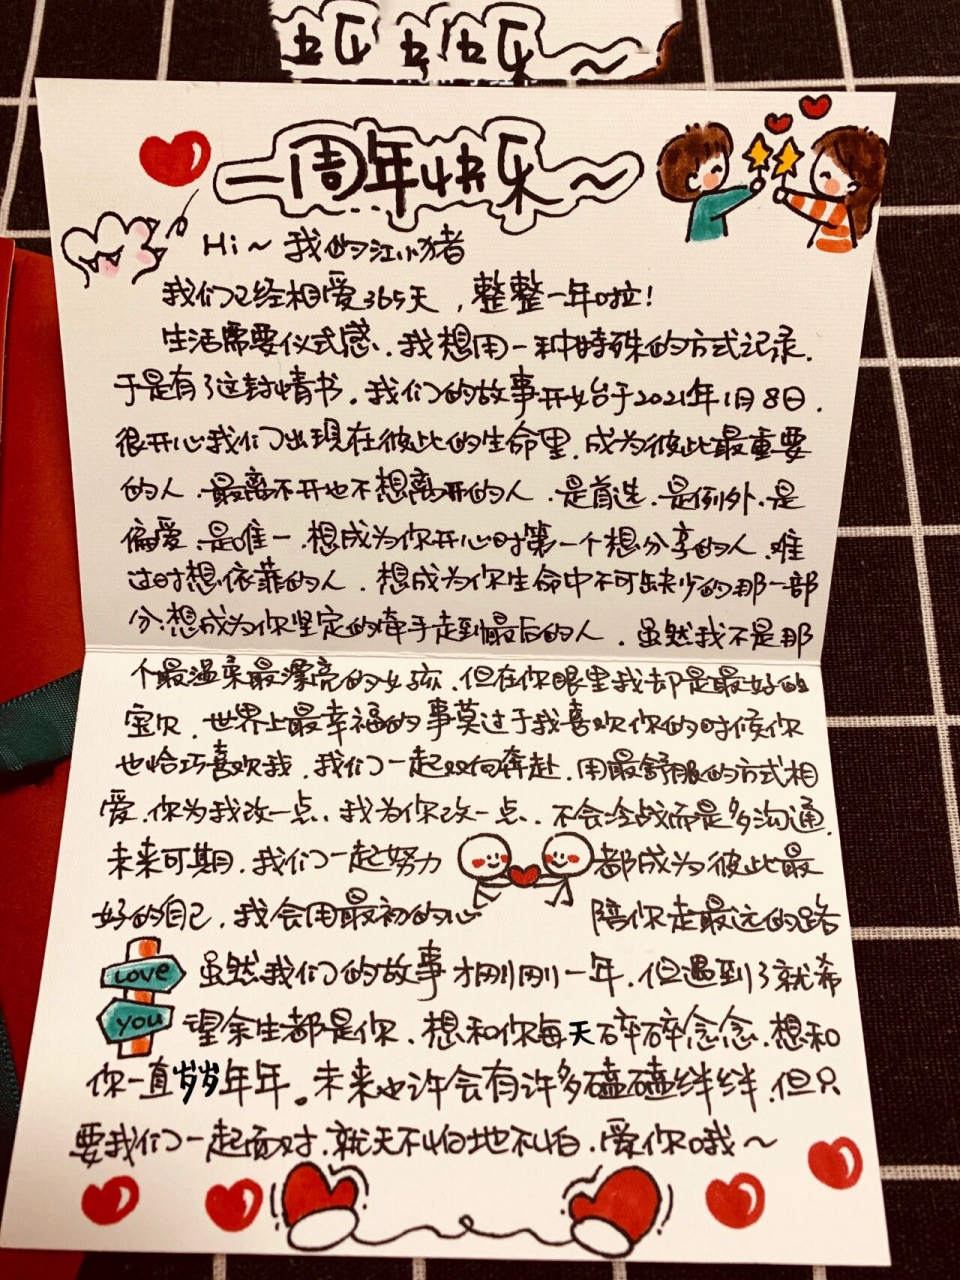 一周年快乐~
Hi~ 我的江小猪
我们已经相爱365天，整整一年啦！
生活需要仪式感、我想用一种特殊的方式记录.
于是有了这封情书. 我们的故事开始于2021年1月8日.
很开心我们出现在彼此的生命里. 成为彼此最重要
的人、最离不开也不想离开的人、是首选、是例外、是
偏爱、是唯一、想成为你开心时第一个想分享的人、难
过时想依靠的人. 想成为你生命中不可缺少的那一部
分. 想成为你坚定的牵手走到最后的人. 虽然我不是那
个最温柔最漂亮的女孩、但在你眼里我却是最好的
宝贝. 世界上最幸福的事莫过于我喜欢你的时候你
也恰巧喜欢我. 我们一起双向奔赴、用最舒服的方式相
爱. 你为我改一点、我为你改一点、不会冷战而是多沟通.
未来可期. 我们一起努力 都成为彼此最
好的自己. 我会用最初的心 陪你走最远的路
LOVE 虽然我们的故事才刚刚一年. 但遇到了就希
you 望余生都是你. 想和你每天碎碎念念. 想和
你一直岁岁年年。未来也许会有许多磕磕绊绊、但只
要我们一起面对. 就天不怕地不怕. 爱你哦~